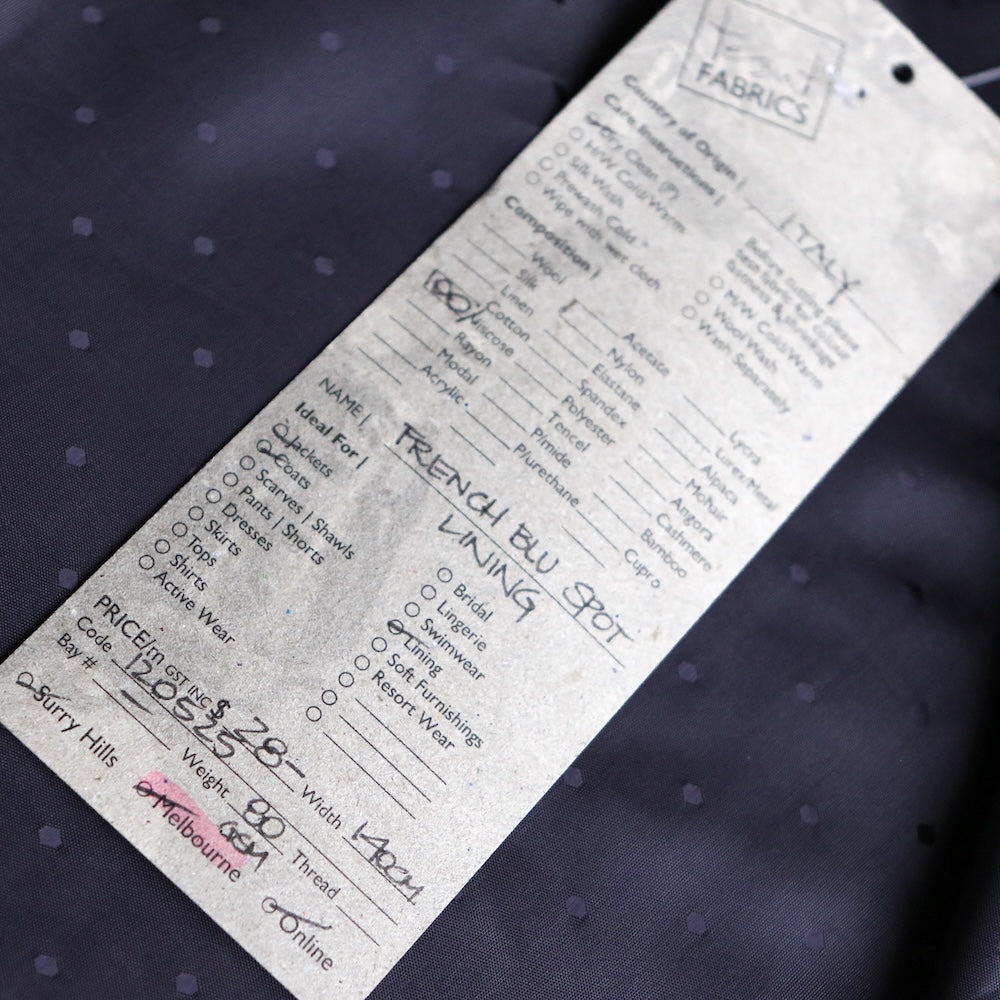 FABRICS
Country of Origin | ITALY
Care Instructions |
Dry Clean (P)
H/W Cold/Warm
Silk Wash
Prewash Cold
Wipe with wet cloth
Before cutting please
test fabric for colour
fastness & shrinkage
H/W Cold/Warm
Wool Wash
Wash Separately
Composition |
Wool
Silk
Linen
Cotton
100% Viscose
Rayon
Modal
Acrylic
Acetate
Nylon
Elastane
Spandex
Polyester
Tencel
P/mide
P/urethane
Lycra
Lurex/Metal
Alpaca
Mohair
Angora
Cashmere
Bamboo
Cupro
NAME | FRENCH BLU SPOT
LINING
Ideal For |
Jackets
Coats
Scarves | Shawls
Pants | Shorts
Dresses
Skirts
Tops
Shirts
Active Wear
Bridal
Lingerie
Swimwear
Lining
Soft Furnishings
Resort Wear
PRICE/m GST INC $ 28-
Code 120525 Width 140CM
Bay # Weight 80 GSM Thread
Surry Hills Melbourne Online